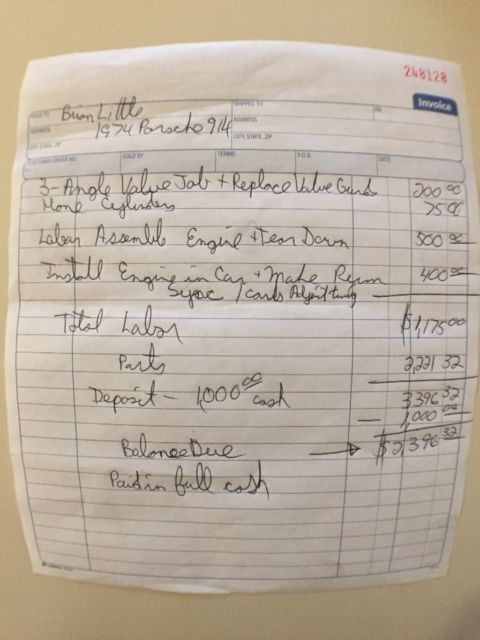 248128
Invoice
SOLD TO Brian Little SHIPPED TO
ADDRESS 1974 Porsche 914 ADDRESS
CITY, STATE, ZIP CITY, STATE, ZIP
CUSTOMER ORDER NO. SOLD BY TERMS F.O.B. DATE
3-Angle Valve Job + Replace Valve 200 00
Hone Cylinders 75 00
Labor Assemble Engine + Tear Down 500 00
Install Engine in Car + Make Run 400 00
Sync / Carbs Adjust
Total Labor $1,175 00
Parts 2,221 32
Deposit - 1,000 00 cash 3396 32
- 1,000 00
Balance Due → $2,396 32
Paid in full cash